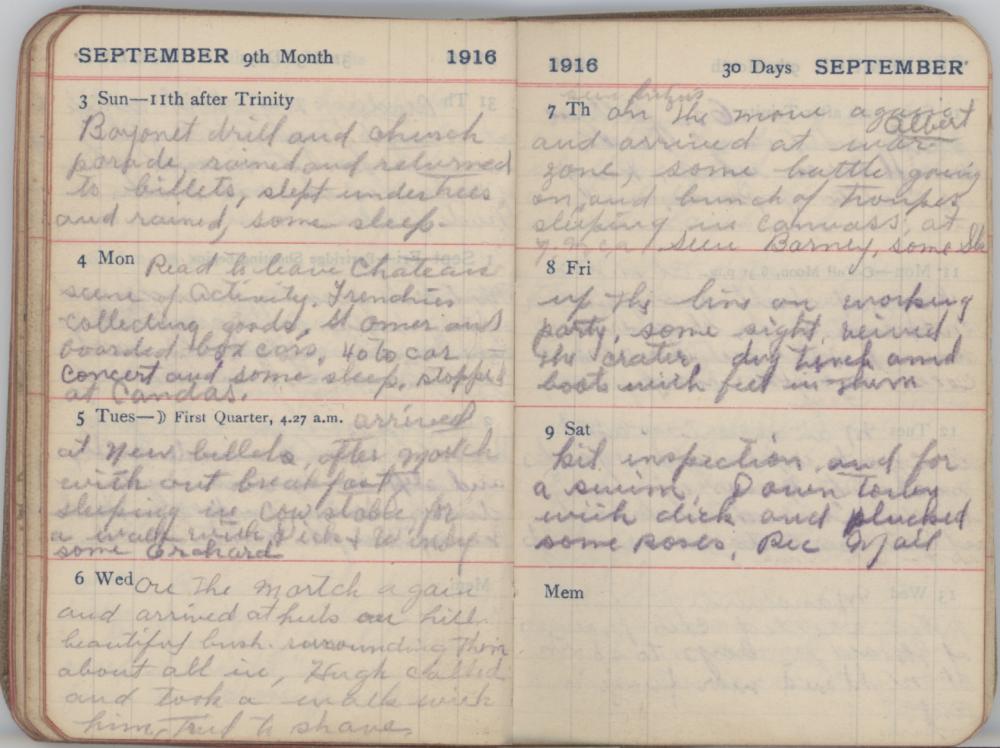 SEPTEMBER 9th Month 1916
3 Sun—11th after Trinity
Bayonet drill and church
parade, rained and returned
to billets, slept under trees
and rained, some sleep.
4 Mon Read to leave Chateau
scene of activity. Frenchies
collecting goods, St Omer and
boarded box cars, 40 to car
Concert and some sleep, stopped
at Candas.
5 Tues—☽ First Quarter, 4.27 a.m. arrived
at new billets, after march
with out breakfast
sleeping in cow stable for
a walk with Dick &
some Orchard
6 Wed On the martch again
and arrived at huts on hill
beautiful bush surrounding them
about all in, Hugh called
and took a walk with
him, tried to shave.
1916 30 Days SEPTEMBER
7 Th on the move again
Albert
and arrived at war
zone, some battle going
on, and bunch of troupes
sleeping in canvass, at
seen Barney, some
8 Fri
up the line on working
party, some sight, veiwed
the crater, dug trench and
boots with feet in them
9 Sat
kit inspection and for
a swim, Down town
with dick and plucked
some roses, Rec Mail
Mem